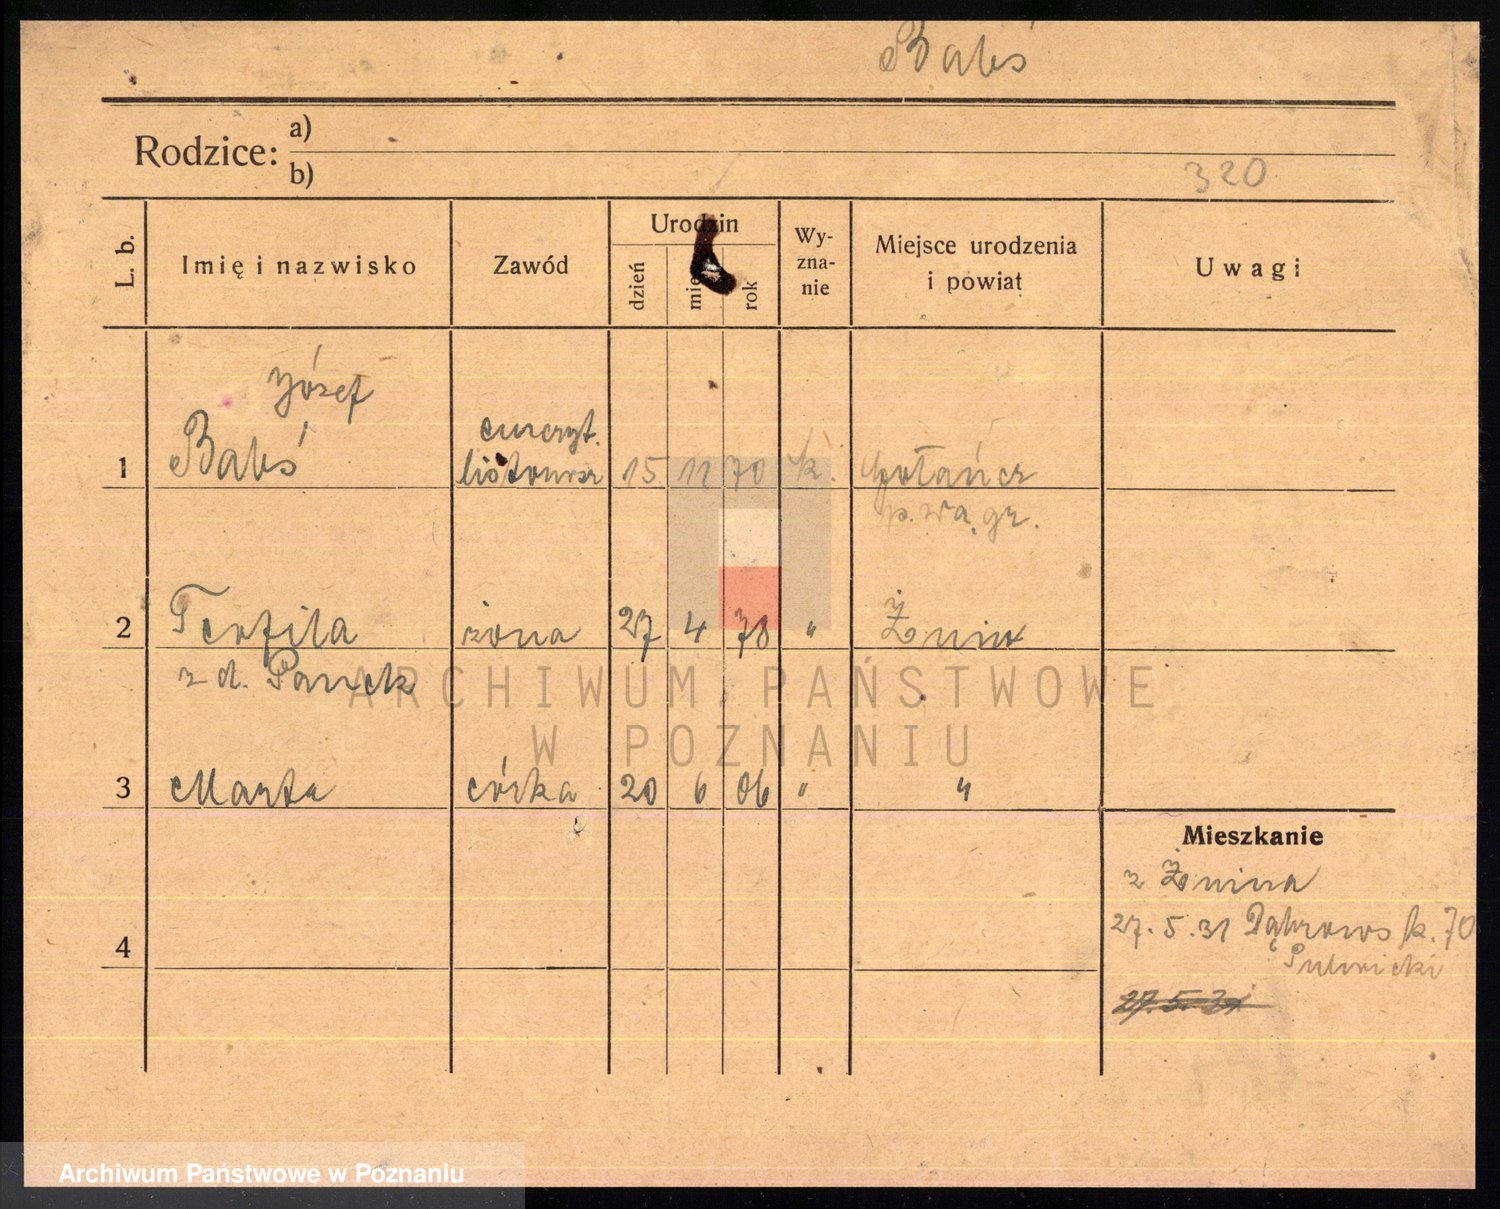 Babś
Rodzice: a)
b)
320
L. b.
Imię i nazwisko
Zawód
Urodzin
dzień
mie
rok
Wy-
zna-
nie
Miejsce urodzenia
i powiat
Uwagi
Józef
1 Babś emeryt. listonosz 15 11 70 k. Gołańcz
p. wągr.
2 Teofila żona 27 4 78 " Żnin
z d.
3 Marta córka 20 6 06 " "
4
Mieszkanie
z Żnina
27.5.31 Dąbrows k. 70
27.5.31
ARCHIWUM PAŃSTWOWE
W POZNANIU
Archiwum Państwowe w Poznaniu